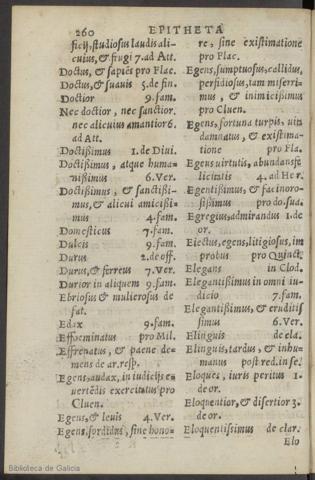 260 EPITHETA
ficij, studiosus laudis ali-
cuius, & frugi 7. ad Att.
Doctus, & sapiēs pro Flac.
Doctus, & suavis 5. de fin.
Doctior 9. fam.
Nec doctior, nec sanctior,
nec alicuius amantior 6.
ad Att.
Doctißimus 1. de Diui.
Doctißimus, atque huma-
nißimus 6. Ver.
Doctißimus, & sanctißi-
mus, & alicui amicißi-
mus 4. fam.
Domesticus 7. fam.
Dulcis 9. fam.
Durus 2. de off.
Durus, & ferreus 7. Ver.
Durior in aliquem 9. fam.
Ebriosus & mulierosus de
fat.
Edax 9. fam.
Effœminatus pro Mil.
Effrenatus, & paene de-
mens de ar. resp.
Egens, audax, in iudicijs e-
uertēdis exercitatus pro
Cluen.
Egens, & leuis 4. Ver.
Egens, sordidus, sine hono-
re, sine existimatione
pro Flac.
Egens, sumptuosus, callidus,
perfidiosus, tam miserri-
mus, & inimicißimus
pro Cluen.
Egens, fortuna turpis, uita
damnatus, & existima-
tione pro Fla.
Egens uirtutis, abundans fe
licitatis 4. ad Her.
Egentißimus & facinoro-
sißimus pro do. sua.
Egregius, admirandus 1. de
or.
Eiectus, egens, litigiosus, im
probus pro Quinct.
Elegans in Clod.
Elegantißimus in omni iu-
dicio 7. fam.
Elegantißimus, & eruditis
simus 6. Ver.
Elinguis de cla.
Elinguis, tardus, & inhu-
manus post red. in se.
Eloquēs, iuris peritus 1.
de or.
Eloquentior, & disertior 3.
de or.
Eloquentissimus de clar.
Elo
Biblioteca de Galicia